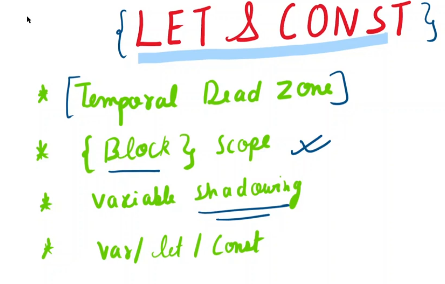 {LET & CONST}
* [Temporal Dead Zone]
* {Block} scope
* variable shadowing
* var/let/const